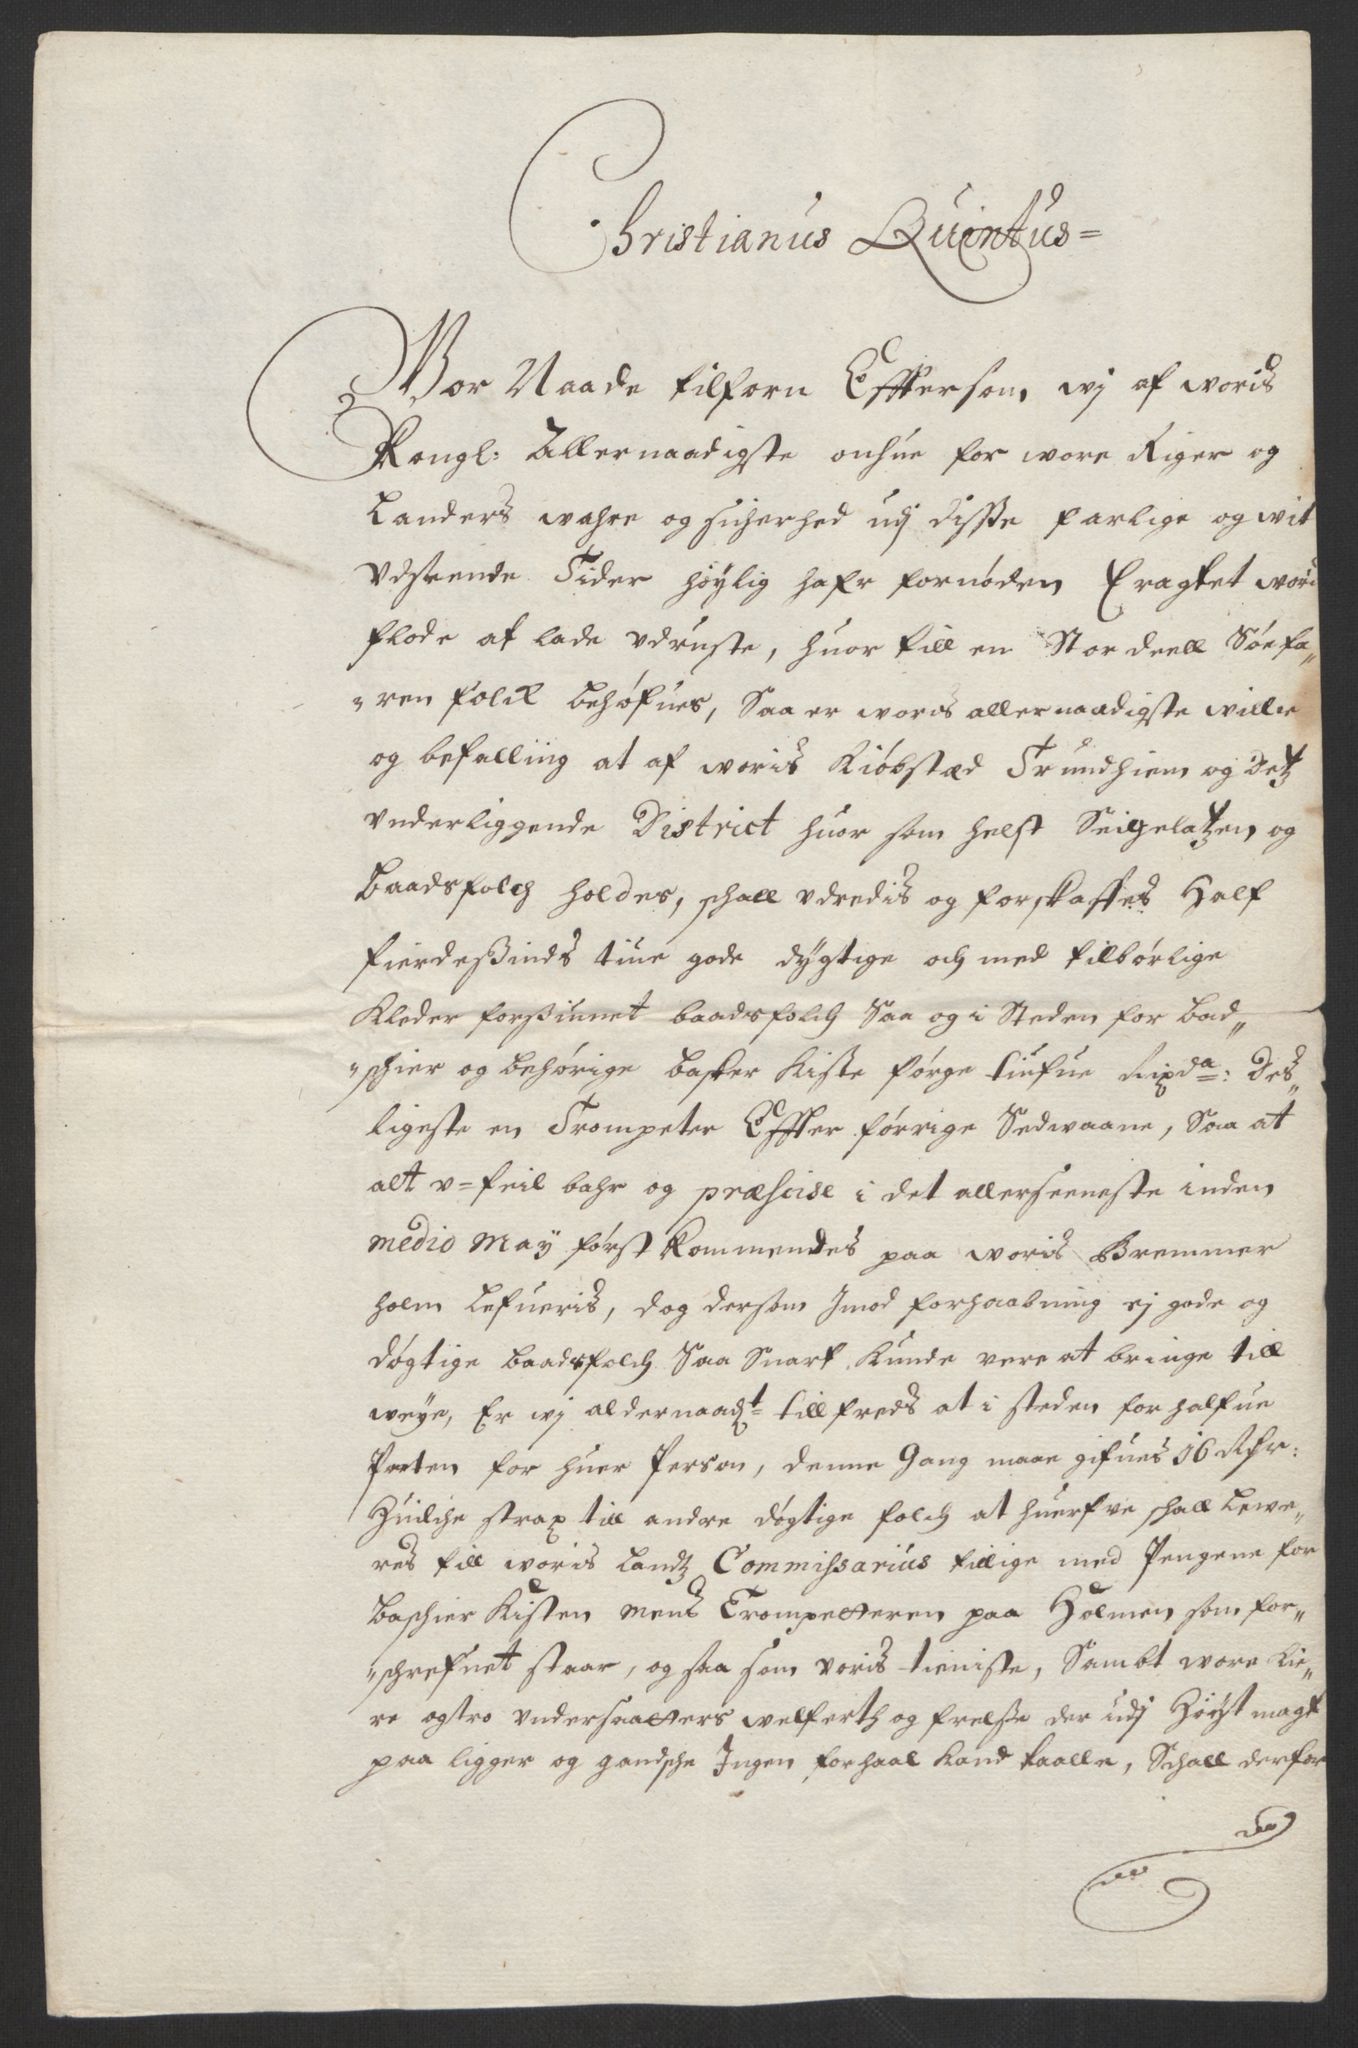 Christianus Quintus=
Vor Naade tilforn Effttersom wj af woris
Kongl: Allernaadigste onhue for wore Riger og
Landers wahre og sicherhed udj disße farlige og wit
vdseende Tider høylig hafr fornøden Eragtet woris
flode at lade vdruste, huor till en Stor deell Søefa„
„ren folck behøfues, Saa er woris allernaadigste wille
og befalling at af woris Kiøbstæd Trundhiem og detz
vnderliggende District huor som helst Seigelatzen og
baadsfolch holdes, schall vdredis og forskaffes Half
fierdeßinds tiue gode dygtige och med tilbørlige
Kleder forsiunet baadsfolch Saa og i Steden for bad„
„schier og behørige basker Kisteførge tiufue Rixda: Des„
ligeste en Trompeter Effter førrige Sedwaane, Saa at
alt v=feilbahr og præscise i det allerseeneste inden
medio May først kommendes paa woris Bremmer
holm lefueris, dog dersom Imod forhaabning ej gode og
døgtige baadsfolch Saa Snart Kunde vere at bringe till
weye, Er wj aldernaadt tillfreds at i steden for halfue
Parten for huer Person, denne Gang maae gifues 16 Rdr:
Huilche strax till andre døgtige folch at huerfve schall lewe„
res till woris landtz Commissarius tillige med Pengene for
baschier Kisten mens Trompetteren paa Holmen som for„
„schrefuet staar, og saa som voris tieniste, Sambt wore kie„
re og tro vndersaatters welferth og frelse der udj Høyst magt
paa ligger og gandsche Ingen forhaal kand taalle, Schall derfor